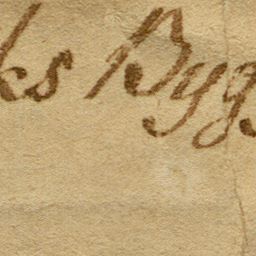 ks Byg